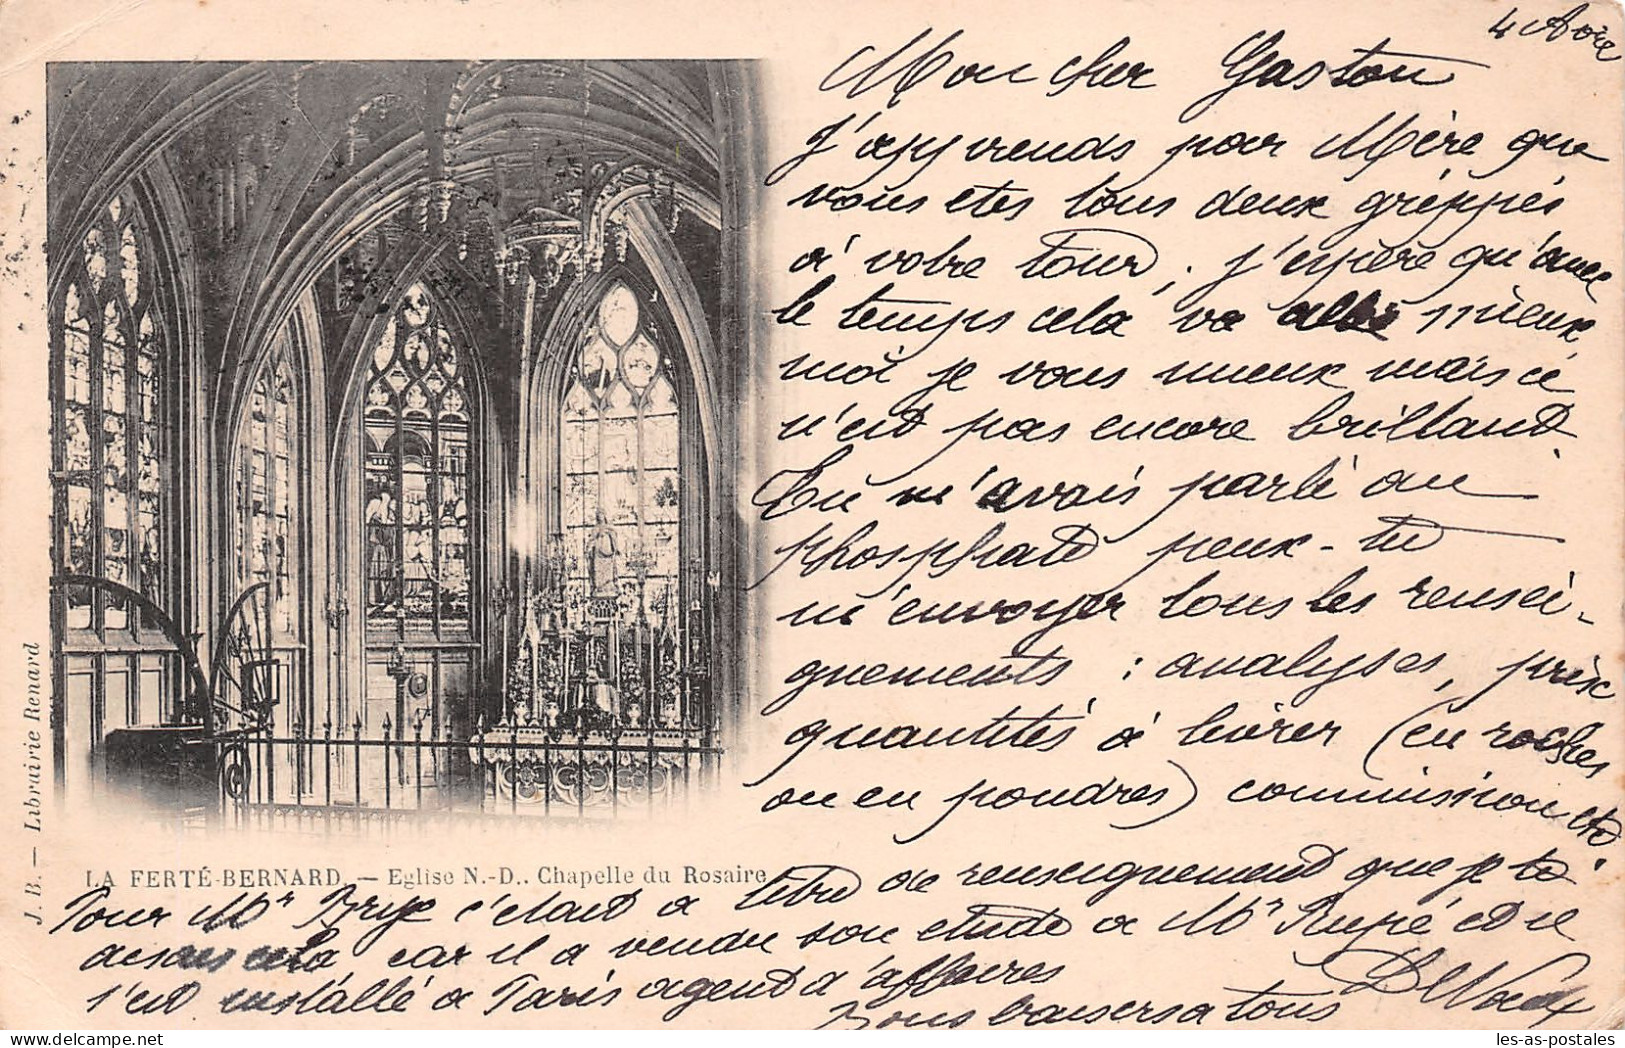 4 Avril
Mon cher Gaston
J'apprends par Mère que
vous etes tous deux grippés
à votre tour, j'espère qu'avec
le temps cela va mieux
moi je vous mieux mais ce
n'est pas encore brillant.
Tu m'avais parlé au
phosphate peux-tu
m'envoyer tous les rensei-
gnements : analyses, prix
quantités à livrer (en roches
ou en poudres) commission etc.
LA FERTÉ-BERNARD. — Eglise N.-D.. Chapelle du Rosaire
J. B. — Librairie Renard
titre de renseignement que je te
Pour Mr c'etait a
disais cela car il a vendu son etude a Mr et il
s'est installé a Paris agent d'affaires
Bons baisers a tous
les-as-postales